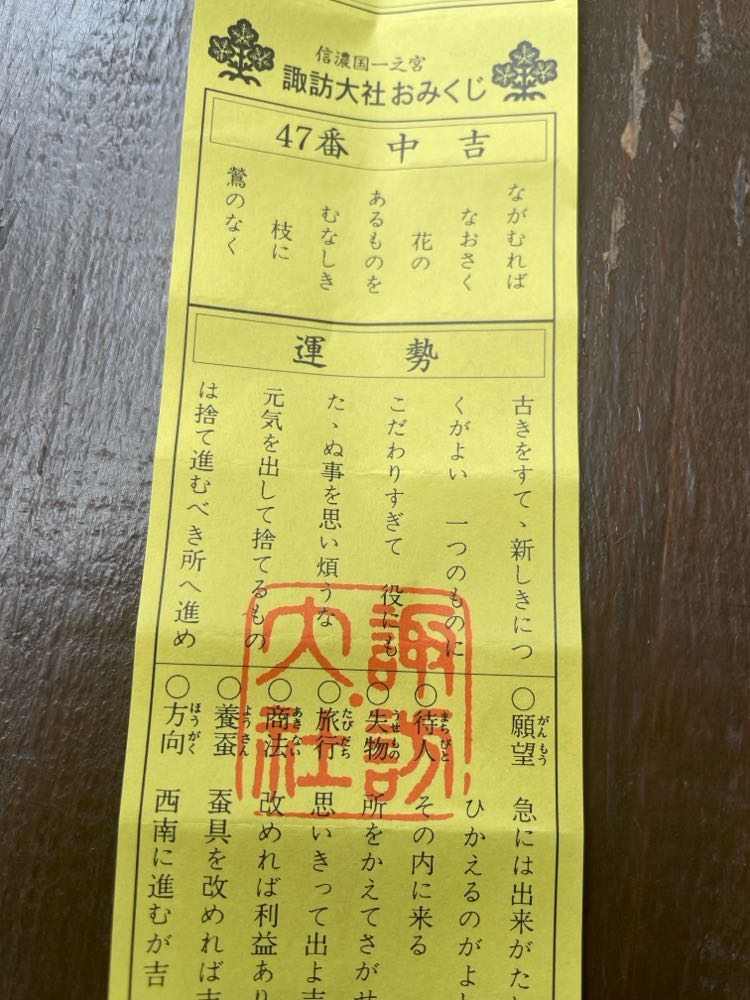 信濃国一之宮
諏訪大社おみくじ
47番 中吉
ながむれば
なおさく
花の
あるものを
むなしき
枝に
鶯のなく
運勢
古きをすてゝ新しきにつ
くがよい 一つのものに
こだわりすぎて 役にも
たゝぬ事を思い煩うな
元気を出して捨てるもの
は捨て進むべき所へ進め
○願望 がんもう 急には出来がた
ひかえるのがよし
○待人 まちびと その内に来る
○失物 うせもの 所をかえてさがせ
○旅行 たびだち 思いきって出よ吉
○商法 あきない 改めれば利益あり
○養蚕 ようさん 蚕具を改めれば吉
○方向 ほうがく 西南に進むが吉
諏訪
大社